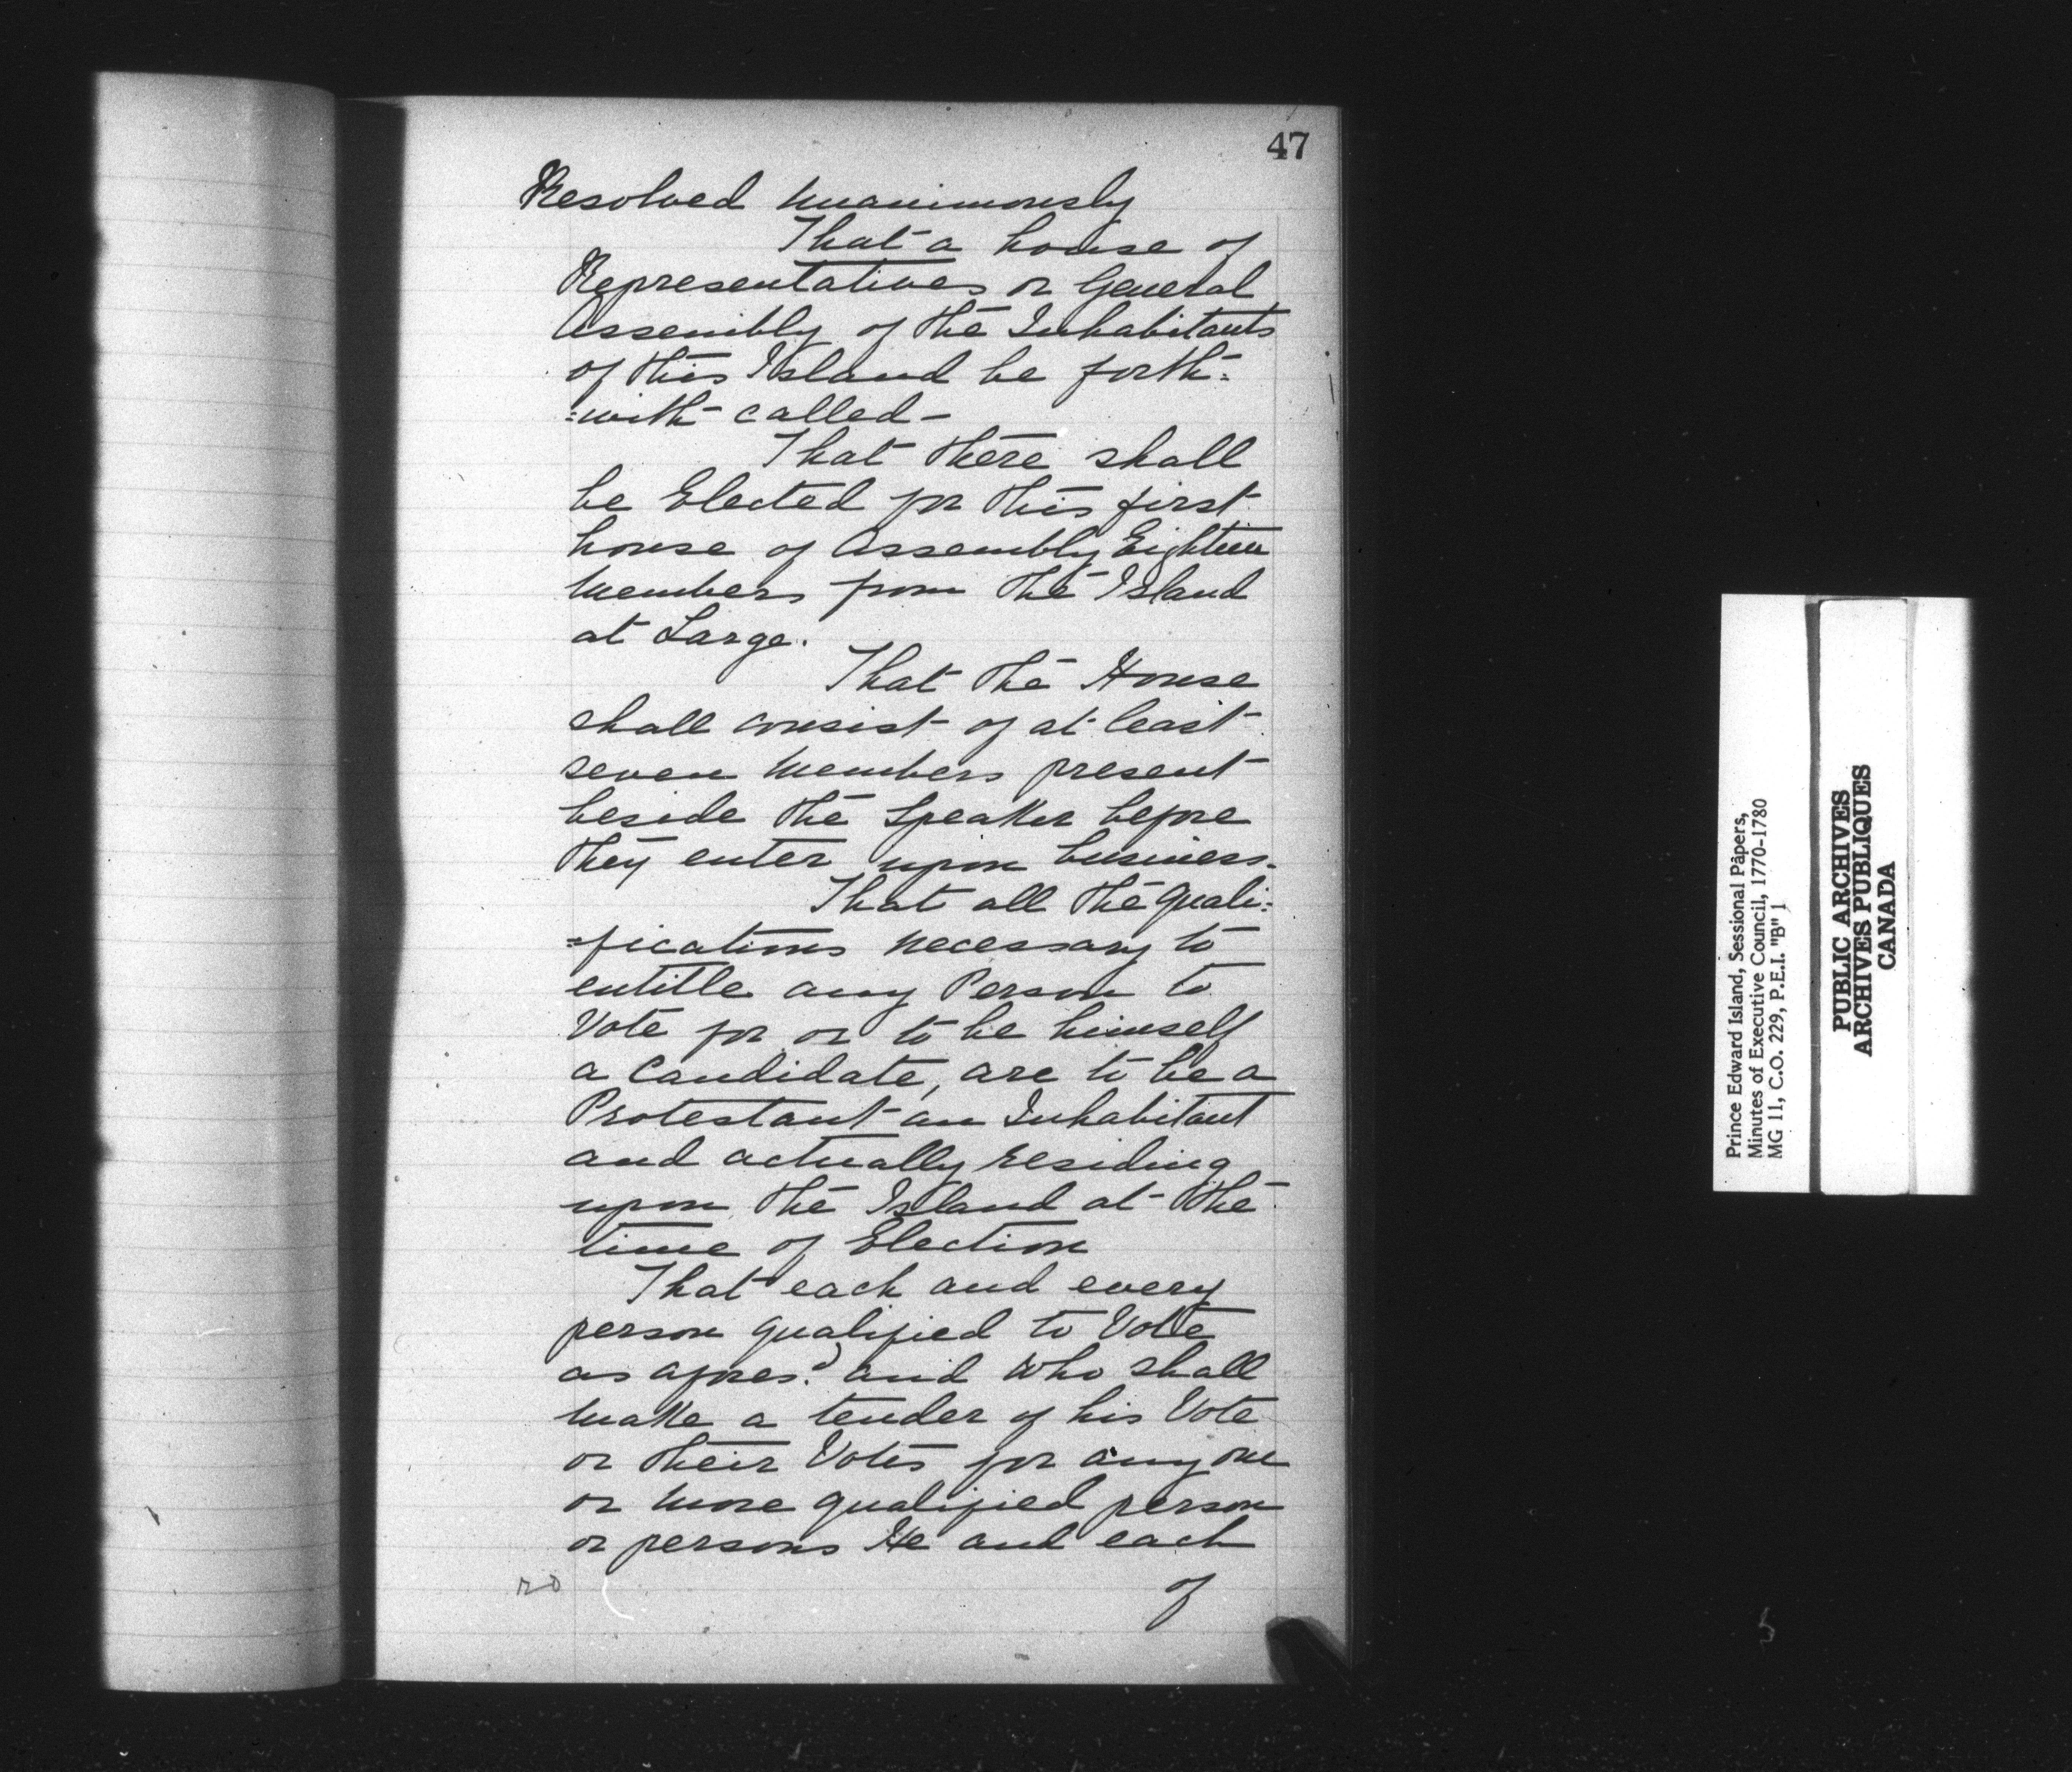 47
Resolved unanimously
That a house of
Representatives or General
Assembly of the Inhabitants
of this Island be forth=
=with called-
That there shall
be Elected for this first
house of Assembly Eighteen
Members from the Island
at Large.
That the House
shall consist of at least
seven Members present
beside the Speaker before
they enter upon business.
That all the quali=
=fications necessary to
entitle any Person to
Vote for or to be himself
a Candidate, are to be a
Protestant an Inhabitant
and actually residing
upon the Island at the
time of Election
That each and every
person qualified to Vote
as afores.d and who shall
make a tender of his Vote
or their Votes for any one
or more qualified person
or persons He and each
of
Prince Edward Island, Sessional Papers,
Minutes of Executive Council, 1770-1780
MG 11, C.O. 229, P.E.I. "B" 1
PUBLIC ARCHIVES
ARCHIVES PUBLIQUES
CANADA